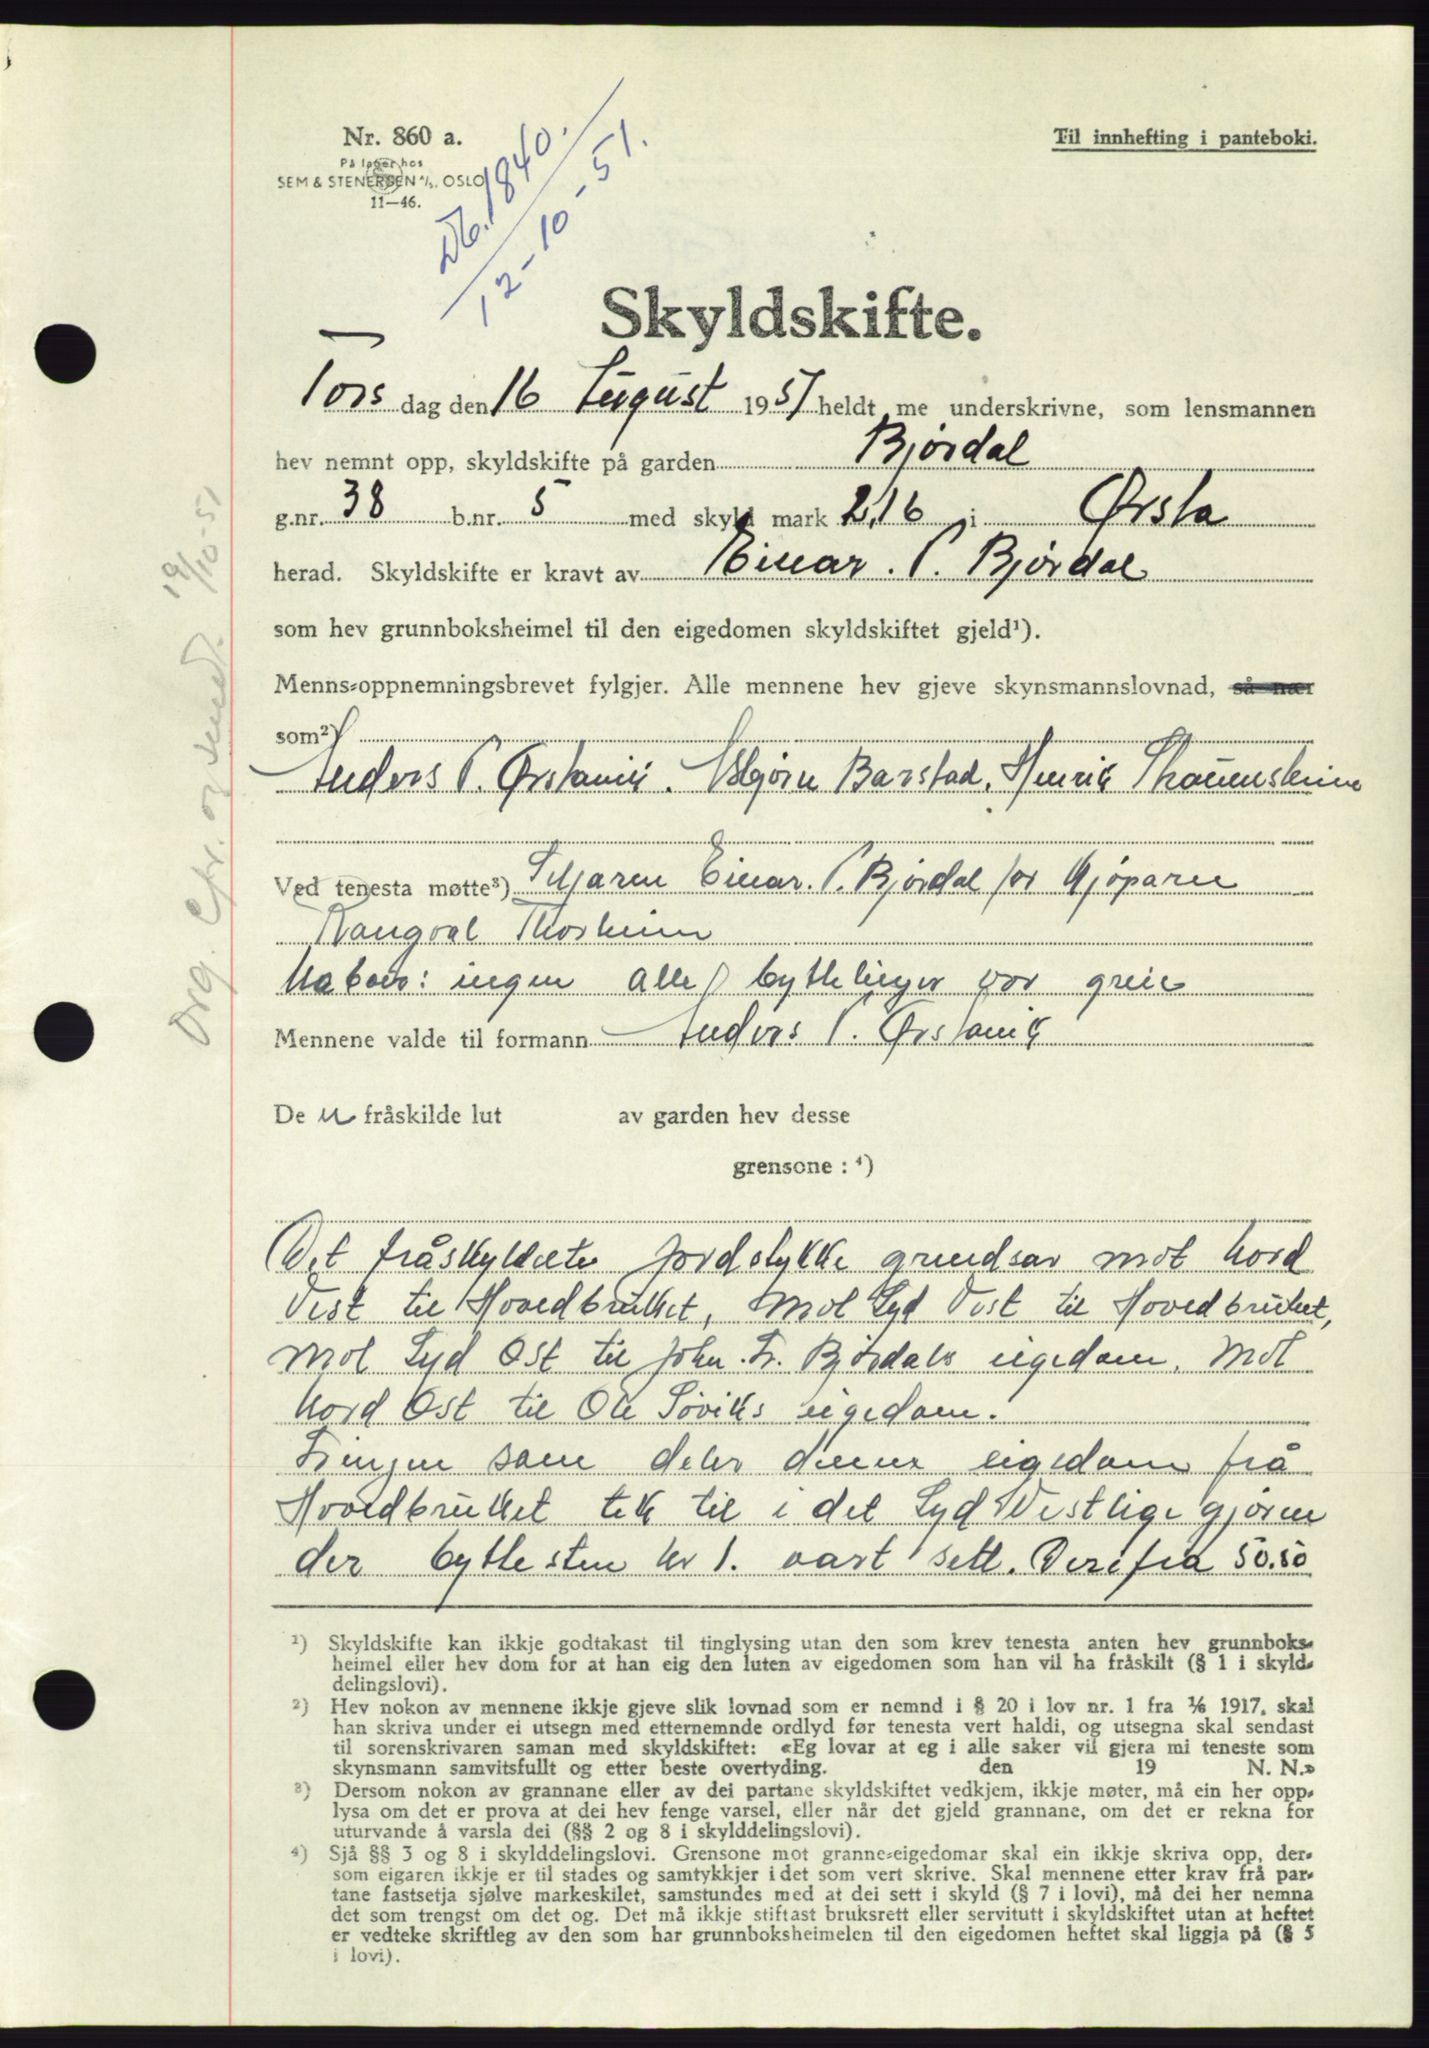 Nr. 860 a.
På lager hos
SEM & STENERSEN A/S, OSLO
11—46.
Db. 1840.
12-10-51.
Til innhefting i panteboki.
Skyldskifte.
Tors dag den 16 August 1951 heldt me underskrivne, som lensmannen
hev nemnt opp, skyldskifte på garden Bjørdal
g.nr. 38 b.nr. 5 med skyld mark 2,16 i Ørsta
herad. Skyldskifte er kravt av Einar. P. Bjørdal
som hev grunnboksheimel til den eigedomen skyldskiftet gjeld¹).
Menns-oppnemningsbrevet fylgjer. Alle mennene hev gjeve skynsmannslovnad, så nær
som²)
Anders P. Ørstavik. Asbjørn Barstad. Henrik
Ved tenesta møtte³) Seljaren Einar. P. Bjørdal for Kjøparen
Thorheim
Naboer: ingen alle byttelinjer var greie
Mennene valde til formann Anders P. Ørstavik
De n fråskilde lut av garden hev desse
grensone : ⁴)
Det fråskyldete jordstykke grendsar mot Nord
Vest til Hovedbruket, mot Syd Vest til Hovedbruket,
mot Syd Ost til John. Bjørdals eigedom. Mot
Nord Ost til Ole Søviks eigedom.
Linjen som deler denne eigedom frå
Hovedbruket tek til i det Syd Vestlige hjørne
der byttesten nr 1. vart sett. Derifra 50.50
¹) Skyldskifte kan ikkje godtakast til tinglysing utan den som krev tenesta anten hev grunnboks-
heimel eller hev dom for at han eig den luten av eigedomen som han vil ha fråskilt (§ 1 i skyld-
delingslovi).
²) Hev nokon av mennene ikkje gjeve slik lovnad som er nemnd i § 20 i lov nr. 1 fra 1/6 1917, skal
han skriva under ei utsegn med etternemnde ordlyd før tenesta vert haldi, og utsegna skal sendast
til sorenskrivaren saman med skyldskiftet: «Eg lovar at eg i alle saker vil gjera mi teneste som
skynsmann samvitsfullt og etter beste overtyding. den 19 N. N.»
³) Dersom nokon av grannane eller av dei partane skyldskiftet vedkjem, ikkje møter, må ein her opp-
lysa om det er prova at dei hev fenge varsel, eller når det gjeld grannane, om det er rekna for
uturvande å varsla dei (§§ 2 og 8 i skylddelingslovi).
⁴) Sjå §§ 3 og 8 i skylddelingslovi. Grensone mot granne-eigedomar skal ein ikkje skriva opp, der-
som eigaren ikkje er til stades og samtykkjer i det som vert skrive. Skal mennene etter krav frå par-
tane fastsetja sjølve markeskilet, samstundes med at dei sett i skyld (§ 7 i lovi), må dei her nemna
det som trengst om det og. Det må ikkje stiftast bruksrett eller servitutt i skyldskiftet utan at heftet
er vedteke skriftleg av den som har grunnboksheimelen til den eigedomen heftet skal liggja på (§ 5
i lovi).
19/10-51